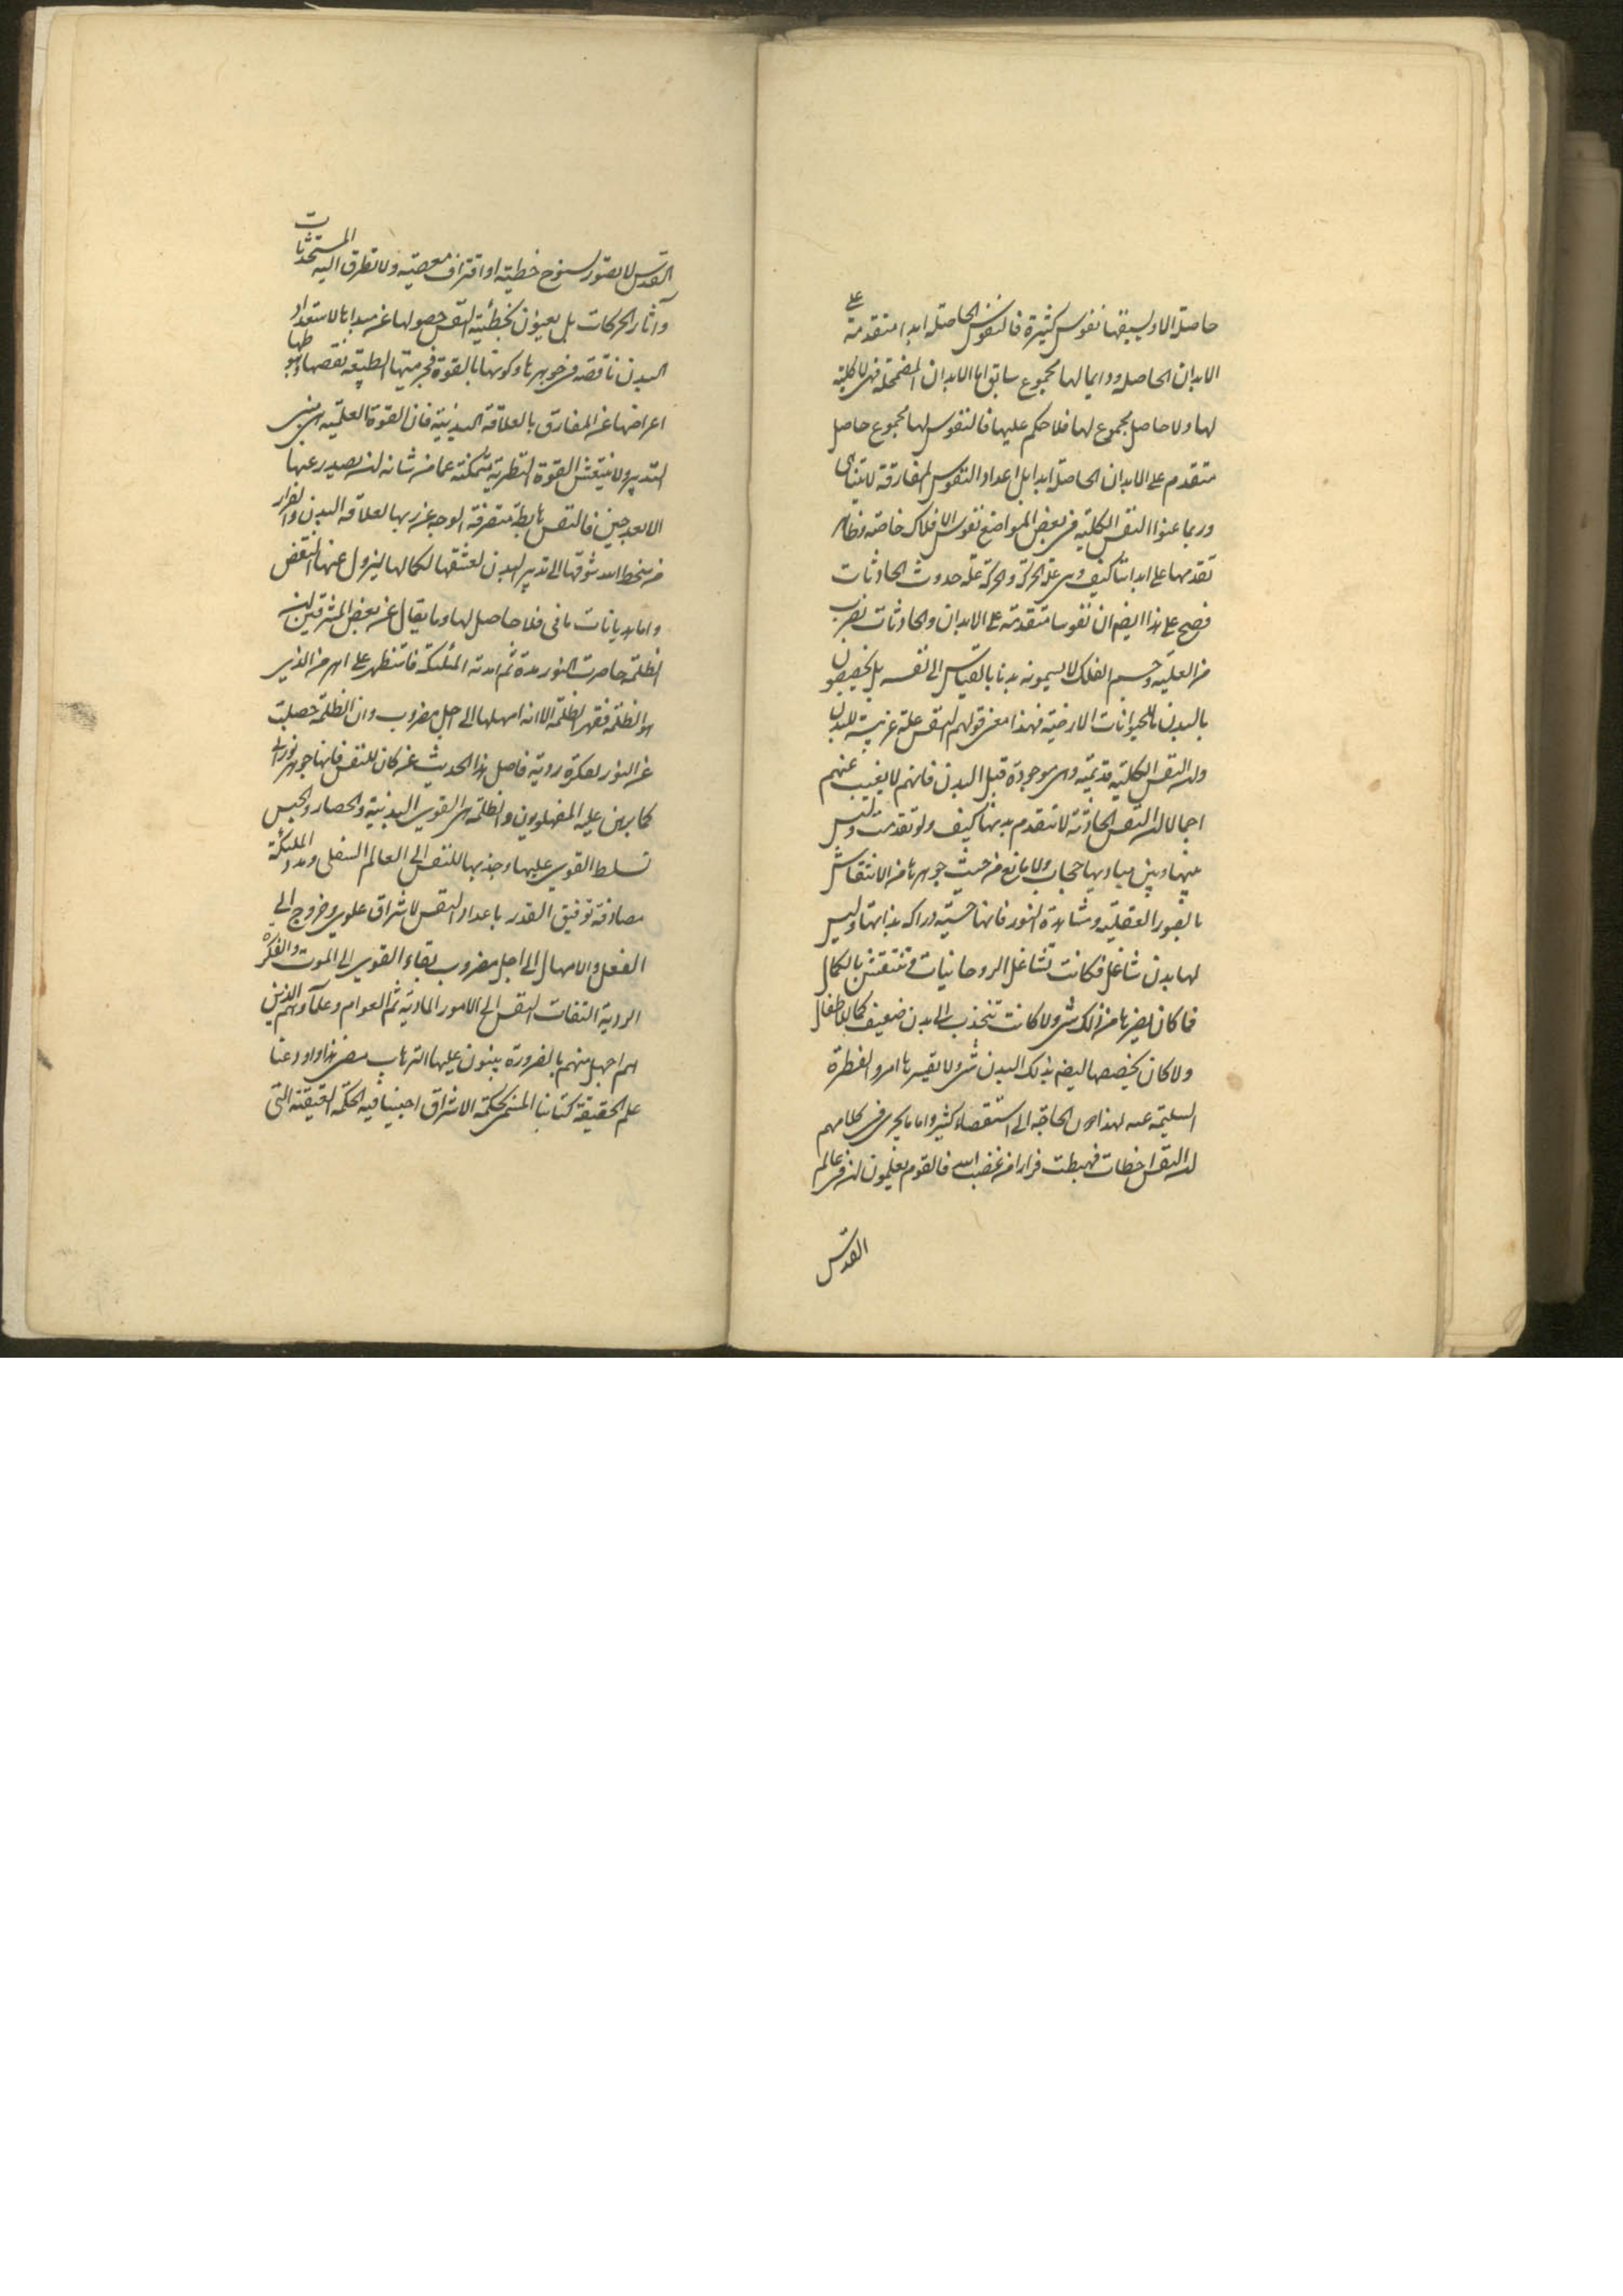 حاصلة الا ويسبقها نفوس كثيرة فالنفوس الحاصلة ابدا متقدمة على
الابدان الحاصلة ودايما لها مجموع سابق اما الابدان المضمحلة فهى لا كلية
لها ولا حاصل مجموع لها فلا حكم عليها فالنفوس لها مجموع حاصل
متقدم على الابدان الحاصلة ابدا بل اعداد النفوس المفارقة لا يتناهى
وربما عنوا النفس الكلية فى بعض المواضع نفوس الافلاك خاصة وظاهر
تقدمها على ابداننا كيف وهى علة الحركة والحركة علة حدوث الحادثات
فصح على هذا ايضا ان نفوسا متقدمة على الابدان والحادثات بضرب
من العلية وجسم الفلك لا يسمونه بدنا بالقياس الى نفسه بل يخصصون
بالبدن ما للحيوانات الارضية فهذا معنى قولهم النفس علة غريبة للبدن
وان النفس الكلية قديمة وهى موجودة قبل البدن فانهم لا يغيب عنهم
اجمالا ان النفس الحادثة لا تتقدم بدنها كيف ولو تقدمت وليس
بينها وبين مباديها حجاب ولا مانع من حيث جوهرها من الانتقاش
بالصور العقلية ومشاهدة النور فانها حية دراكة بذاتها وليس
لها بدن شاغل فكانت تشاغل الروحانيات وتنتقش بالكمال
فما كان يضرها من ذلك شئ ولا كانت تنجذب الى بدن ضعيف كما للاطفال
ولا كان يخصصها ايضا بذلك البدن شئ ولا يقسرها امر والفطرة
السليمة الحاجة الى استقصاء كثير واما ما يجرى فى كلامهم
ان النفس اخطات فهبطت فرارا من غضب الله فالقوم يعلمون ان فى عالم
القدس
القدس لا يصور سنوح خطية او اقتراف معصية ولا تطرق اليه المستحدثات
وآثار الحركات بل يعنون بخطيئة النفس حصولها عن مبدأها لاستعداد
البدن ناقصة فى جوهرها وكونها بالقوة فجرميتها الطبيعة نقصها وهبوطها
اعراضها عن المفارق بالعلاقة البدنية فان القوة العلمية هى
التدبير ولا ينتعش القوة النظرية متمكنة عما من شانه ان يصدر عنها
الا بعد حين فالنفس هابطة متفرقة الوجه عن ربها لعلاقة البدن والفرار
من سخط الله شوقها الى تدبير البدن لعشقها لكمالها ليزول عنها النقص
واما هذيانات مانى فلا حاصل لها وما يقال عن بعض المشرقيين ان
الظلمة حاصرت النور مدة ثم امدته الملئكة فاستظهر على اهرمن الذى
هو الظلمة فقهر الظلمة الا انه امهلها الى اجل مضروب وان الظلمة حصلت
عن النور لفكرة ردية فاصل هذا الحديث عن كان للنفس فانها جوهر نورانى
كما برهن عليه الفهلويون والظلمة هى القوى البدنية والحصار والحبس
تسلط القوى عليها وجذبها للنفس الى العالم السفلى ومدد الملئكة
مصادفة توفيق القدر باعداد النفس لاشراق علوى وخروج الى
الفعل والامهال الى اجل مضروب بقاء القوى الى الموت والفكرة
الردية التفات النفس الى الامور المادية ثم العوام وعلماؤهم الذين
هم اجهل منهم بالضرورة يبنون عليها الترهات مضى هذا واودعنا
علم الحقيقة كتابنا المسمى بحكمة الاشراق احيينا فيه الحكمة العتيقة التى